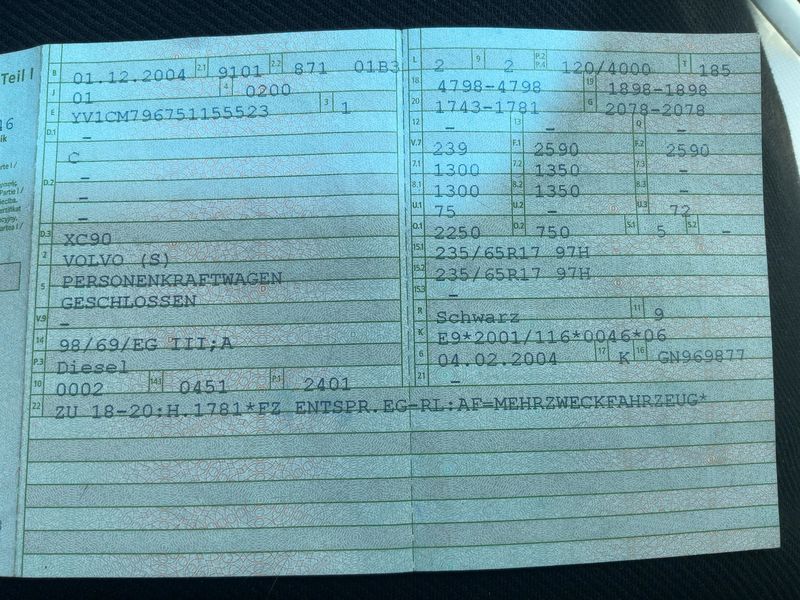 Teil I
B 01.12.2004 2.1 9101 2.2 871 01B3
J 01 4 0200
E YV1CM796751155523 3 1
D.1 –
C
D.2 –
–
–
D.3 XC90
2 VOLVO (S)
5 PERSONENKRAFTWAGEN
GESCHLOSSEN
V.9 –
14 98/69/EG III;A
P.3 Diesel
10 0002 14.1 0451 P.1 2401
22 ZU 18-20:H.1781*FZ ENTSPR.EG-RL:AF=MEHRZWECKFAHRZEUG*
L 2 9 2 P.2 P.4 120/4000 T 185
18 4798-4798 19 1898-1898
20 1743-1781 G 2078-2078
12 – 13 – Q –
V.7 239 F.1 2590 F.2 2590
7.1 1300 7.2 1350 7.3 –
8.1 1300 8.2 1350 8.3 –
U.1 75 U.2 – U.3 72
O.1 2250 O.2 750 S.1 5 S.2 –
15.1 235/65R17 97H
15.2 235/65R17 97H
15.3 –
R Schwarz 11 9
K E9*2001/116*0046*06
6 04.02.2004 17 K 16 GN969877
21 –